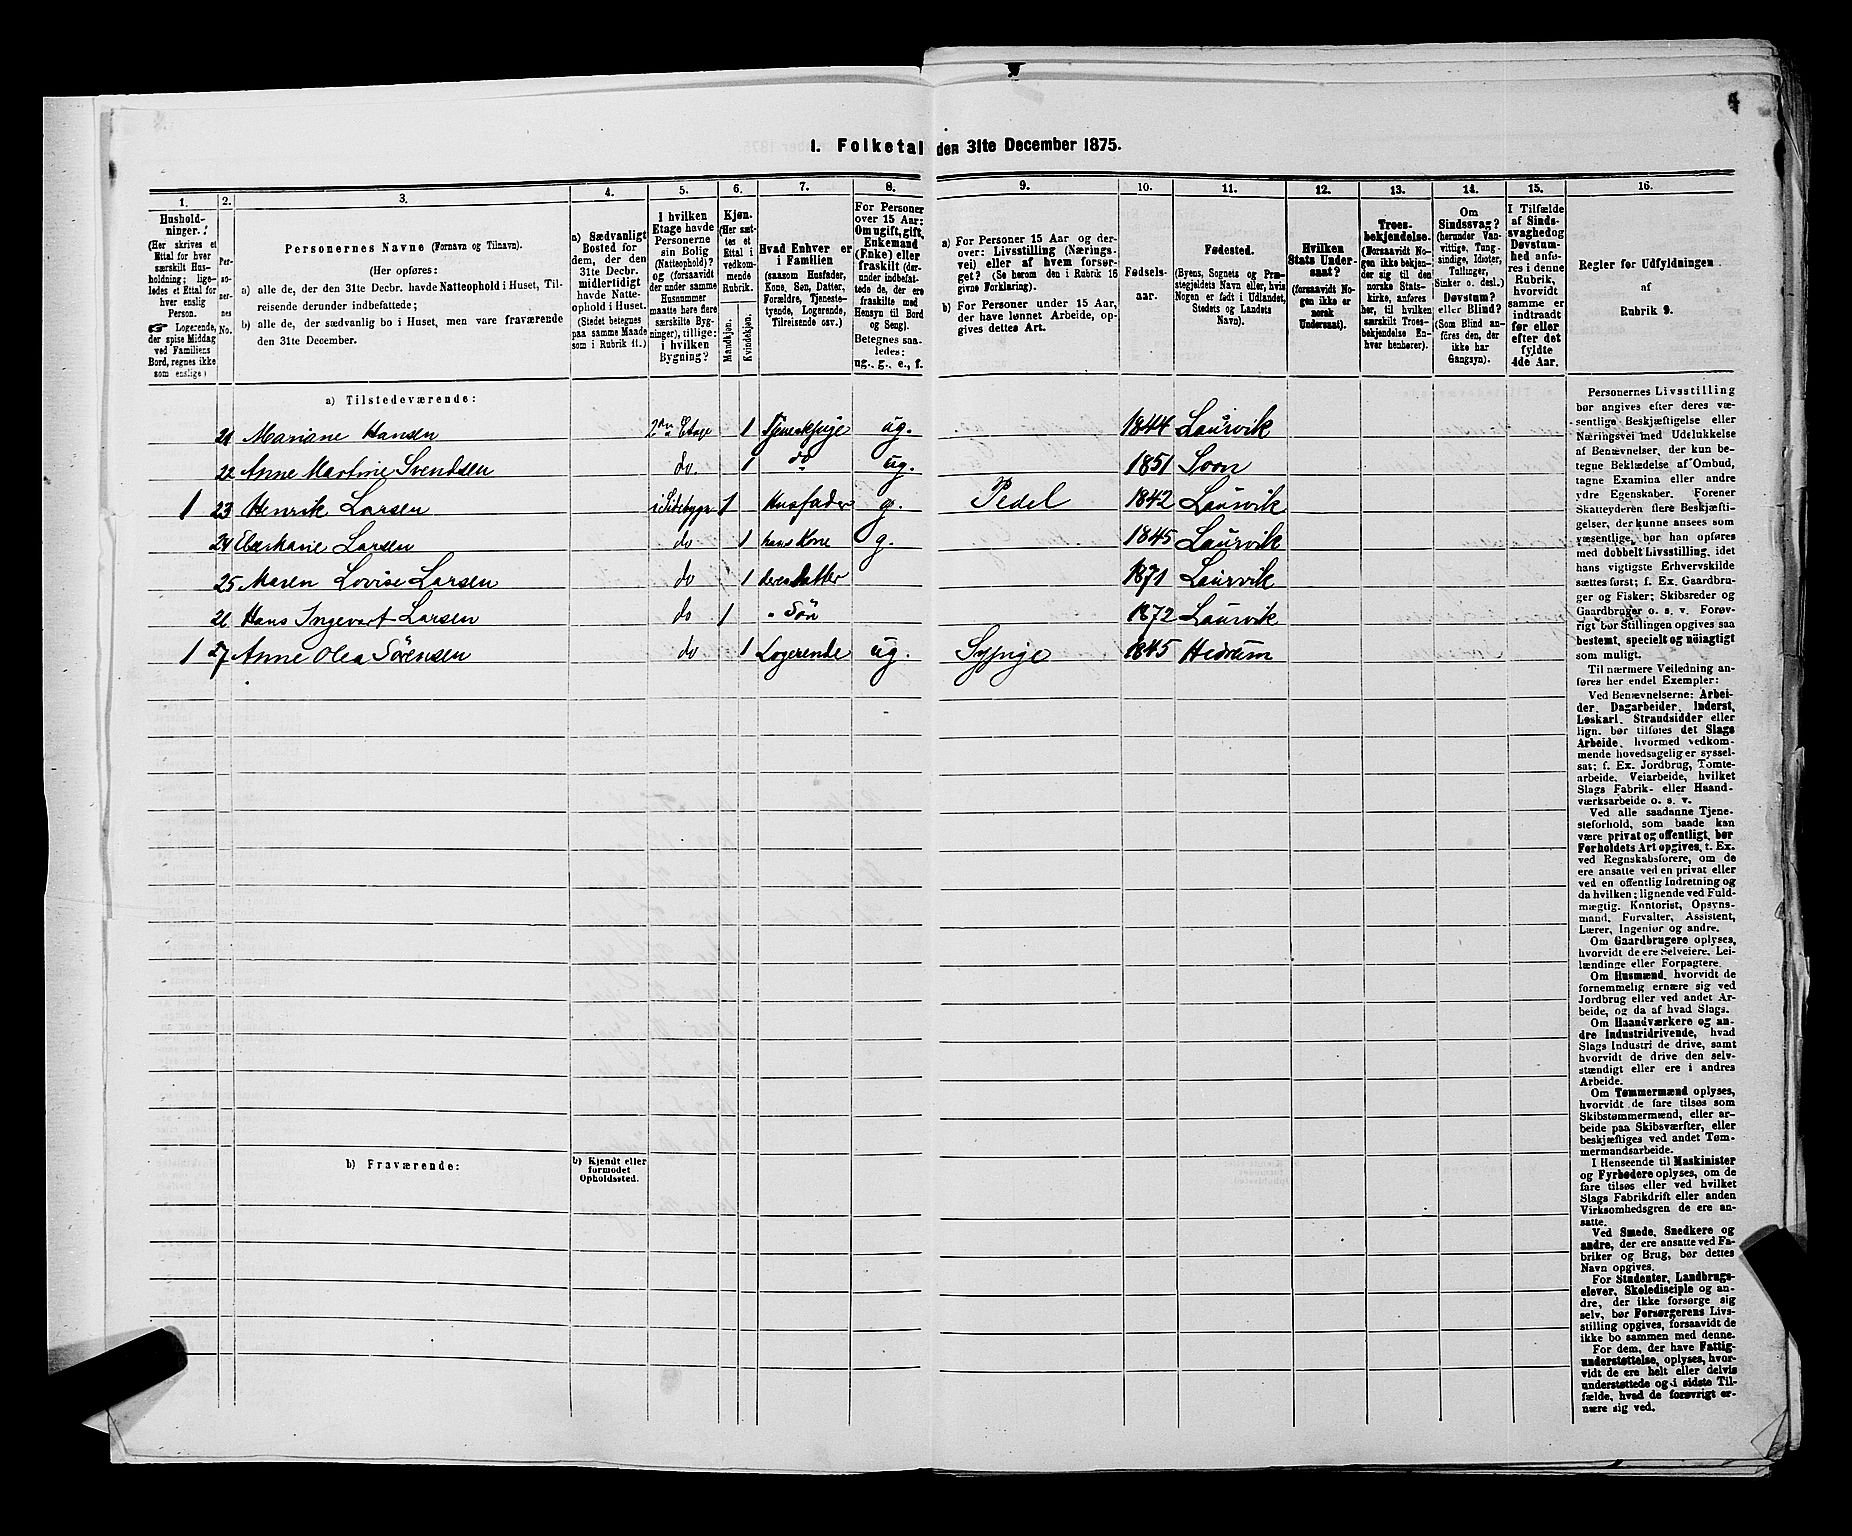 4
I. Folketal den 31te December 1875.
1. 2. 3. 4. 5. 6. 7. 8. 9. 10. 11. 12. 13. 14. 15. 16.
Hushold-
ninger.
(Her skrives et
Ettal for hver
særskilt Hus-
holdning; lige-
ledes et Ettal for
hver enslig
Person.
☞ Logerende,
der spise Middag
ved Familiens
Bord, regnes ikke
som enslige)
Per-
so-
ner-
nes
No.
Personernes Navne (Fornavn og Tilnavn).
(Her opføres:
a) alle de, der den 31te Decbr. havde Natteophold i Huset, Til-
reisende derunder indbefattede;
b) alle de, der sædvanlig bo i Huset, men vare fraværende
den 31te December.
a) Sædvanligt
Bosted for
dem, der den
31te Decbr.
midlertidigt
havde Natte-
ophold i Huset.
(Stedet betegnes
paa samme Maade
som i Rubrik 11.)
I hvilken
Etage havde
Personerne
sin Bolig
(Natteophold)?
og (forsaavidt
der under samme
Husnummer
maatte høre flere
særskilte Byg-
ninger), tillige:
i hvilken
Bygning?
Kjøn.
(Her sæt-
tes et
Ettal i
vedkom-
mende
Rubrik.
Mandkjøn.
Kvindekjøn.
Hvad Enhver er
i Familien
(saasom Husfader,
Kone, Søn, Datter,
Forældre, Tjeneste-
tyende, Logerende,
Tilreisende osv.)
For Personer
over 15 Aar:
Om ugift, gift,
Enkemand
(Enke) eller
fraskilt (der-
under indbefat-
tede de, der ere
fraskilte med
Hensyn til Bord
og Seng).
Betegnes saa-
ledes:
ug., g., e., f.
a) For Personer 15 Aar og der-
over: Livsstilling (Nærings-
vei) eller af hvem forsør-
get? (Se herom den i Rubrik 16
givne Forklaring).
b) For Personer under 15 Aar,
der have lønnet Arbeide, op-
gives dettes Art.
Fødsels-
aar.
Fødested.
(Byens, Sognets og Præ-
stegjeldets Navn eller, hvis
Nogen er født i Udlandet,
Stedets og Landets
Navn).
Hvilken
Stats Under-
saat?
(forsaavidt No-
gen ikke er
norsk
Undersaat).
Troes-
bekjendelse.
(Forsaavidt No-
gen ikke bekjen-
der sig til den
norske Stats-
kirke, anføres
her, til hvilket
særskilt Troes-
bekjendelse En-
hver henhører).
Om
Sindssvag?
(herunder Van-
vittige, Tung-
sindige, Idioter,
Tullinger,
Sinker o. desl.)
Døvstum?
eller Blind?
(Som Blind an-
føres den, der
ikke har
Gangsyn).
I Tilfælde
af Sinds-
svaghed og
Døvstum-
hed anfø-
res i denne
Rubrik,
hvorvidt
samme er
indtraadt
før eller
efter det
fyldte
4de Aar.
Regler for Udfyldningen
af
Rubrik 9.
a) Tilstedeværende:
21 Mariane Hansen 2den Etage 1 Tjenestpige ug. 1844 Laurvik
22 Anne Martine Svendsen do. 1 do ug. 1851 Soon
1 23 Henrik Larsen i Sidebygn 1 Husfader g. Pedel 1842 Laurvik
24 Larsen do 1 hans Kone g. 1845 Laurvik
25 Maren Lovise Larsen do 1 deres datter 1871 Laurvik
26 Hans Ingevart Larsen do 1 " Søn 1872 Laurvik
1 27 Anne Olea Sörensen do 1 Logerende ug. Sypige 1845 Hedrum
b) Fraværende:
b) Kjendt eller
formodet
Opholdssted.
Personernes Livsstilling
bør angives efter deres væ-
sentlige Beskjæftigelse eller
Næringsvei med Udelukkelse
af Benævnelser, der kun be-
tegne Beklædelse af Ombud,
tagne Examina eller andre
ydre Egenskaber. Forener
Skatteyderen flere Beskjæfti-
gelser, der kunne ansees som
væsentlige, bør han opføres
med dobbelt Livsstilling, idet
hans vigtigste Erhvervskilde
sættes først; f. Ex. Gaardbru-
ger og Fisker; Skibsreder og
Gaardbruger o. s. v. Forøv-
rigt bør Stillingen opgives saa
bestemt, specielt og nøiagtigt
som muligt.
Til nærmere Veiledning an-
føres her endel Exempler:
Ved Benævnelserne: Arbei-
der, Dagarbeider, Inderst,
Løskarl, Strandsidder eller
lign. bør tilføies det Slags
Arbeide, hvormed vedkom-
mende hovedsagelig er syssel-
sat; f. Ex. Jordbrug, Tomte-
arbeide, Veiarbeide, hvilket
Slags Fabrik- eller Haand-
værksarbeide o. s. v.
Ved alle saadanne Tjene-
steforhold, som baade kan
være privat og offentligt, bør
Forholdets Art opgives, t. Ex.
ved Regnskabsførere, om de
ere ansatte ved en privat eller
ved en offentlig Indretning og
da hvilken; lignende ved Fuld-
mægtig, Kontorist, Opsyns-
mand, Forvalter, Assistent,
Lærer, Ingeniør og andre.
Om Gaardbrugere oplyses,
hvorvidt de ere Selveiere, Lei-
lændinge eller Forpagtere.
Om Husmænd, hvorvidt de
fornemmelig ernære sig ved
Jordbrug eller ved andet Ar-
beide, og da af hvad Slags.
Om Haandværkere og an-
dre Industridrivende, hvad
Slags Industri de drive, samt
hvorvidt de drive den selv-
stændigt eller ere i andres
Arbeide.
Om Tømmermænd oplyses,
hvorvidt de fare tilsøs som
Skibstømmermænd, eller ar-
beide paa Skibsværfter, eller
beskjæftiges ved andet Tøm-
mermandsarbeide.
I Henseende til Maskinister
og Fyrbødere oplyses, om de
fare tilsøs eller ved hvilket
Slags Fabrikdrift eller anden
Virksomhedsgren de ere an-
satte.
Ved Smede, Snedkere og
andre, der ere ansatte ved Fa-
briker og Brug, bør dettes
Navn opgives.
For Studenter, Landbrugs-
elever, Skoledisciple og an-
dre, der ikke forsørge sig
selv, bør Forsørgerens Livs-
stilling opgives, forsaavidt de
ikke bo sammen med denne.
For dem, der have Fattig-
understøttelse, oplyses, hvor-
vidt de ere helt eller delvis
understøttede og i sidste Til-
fælde, hvad de forøvrigt er-
nære sig ved.